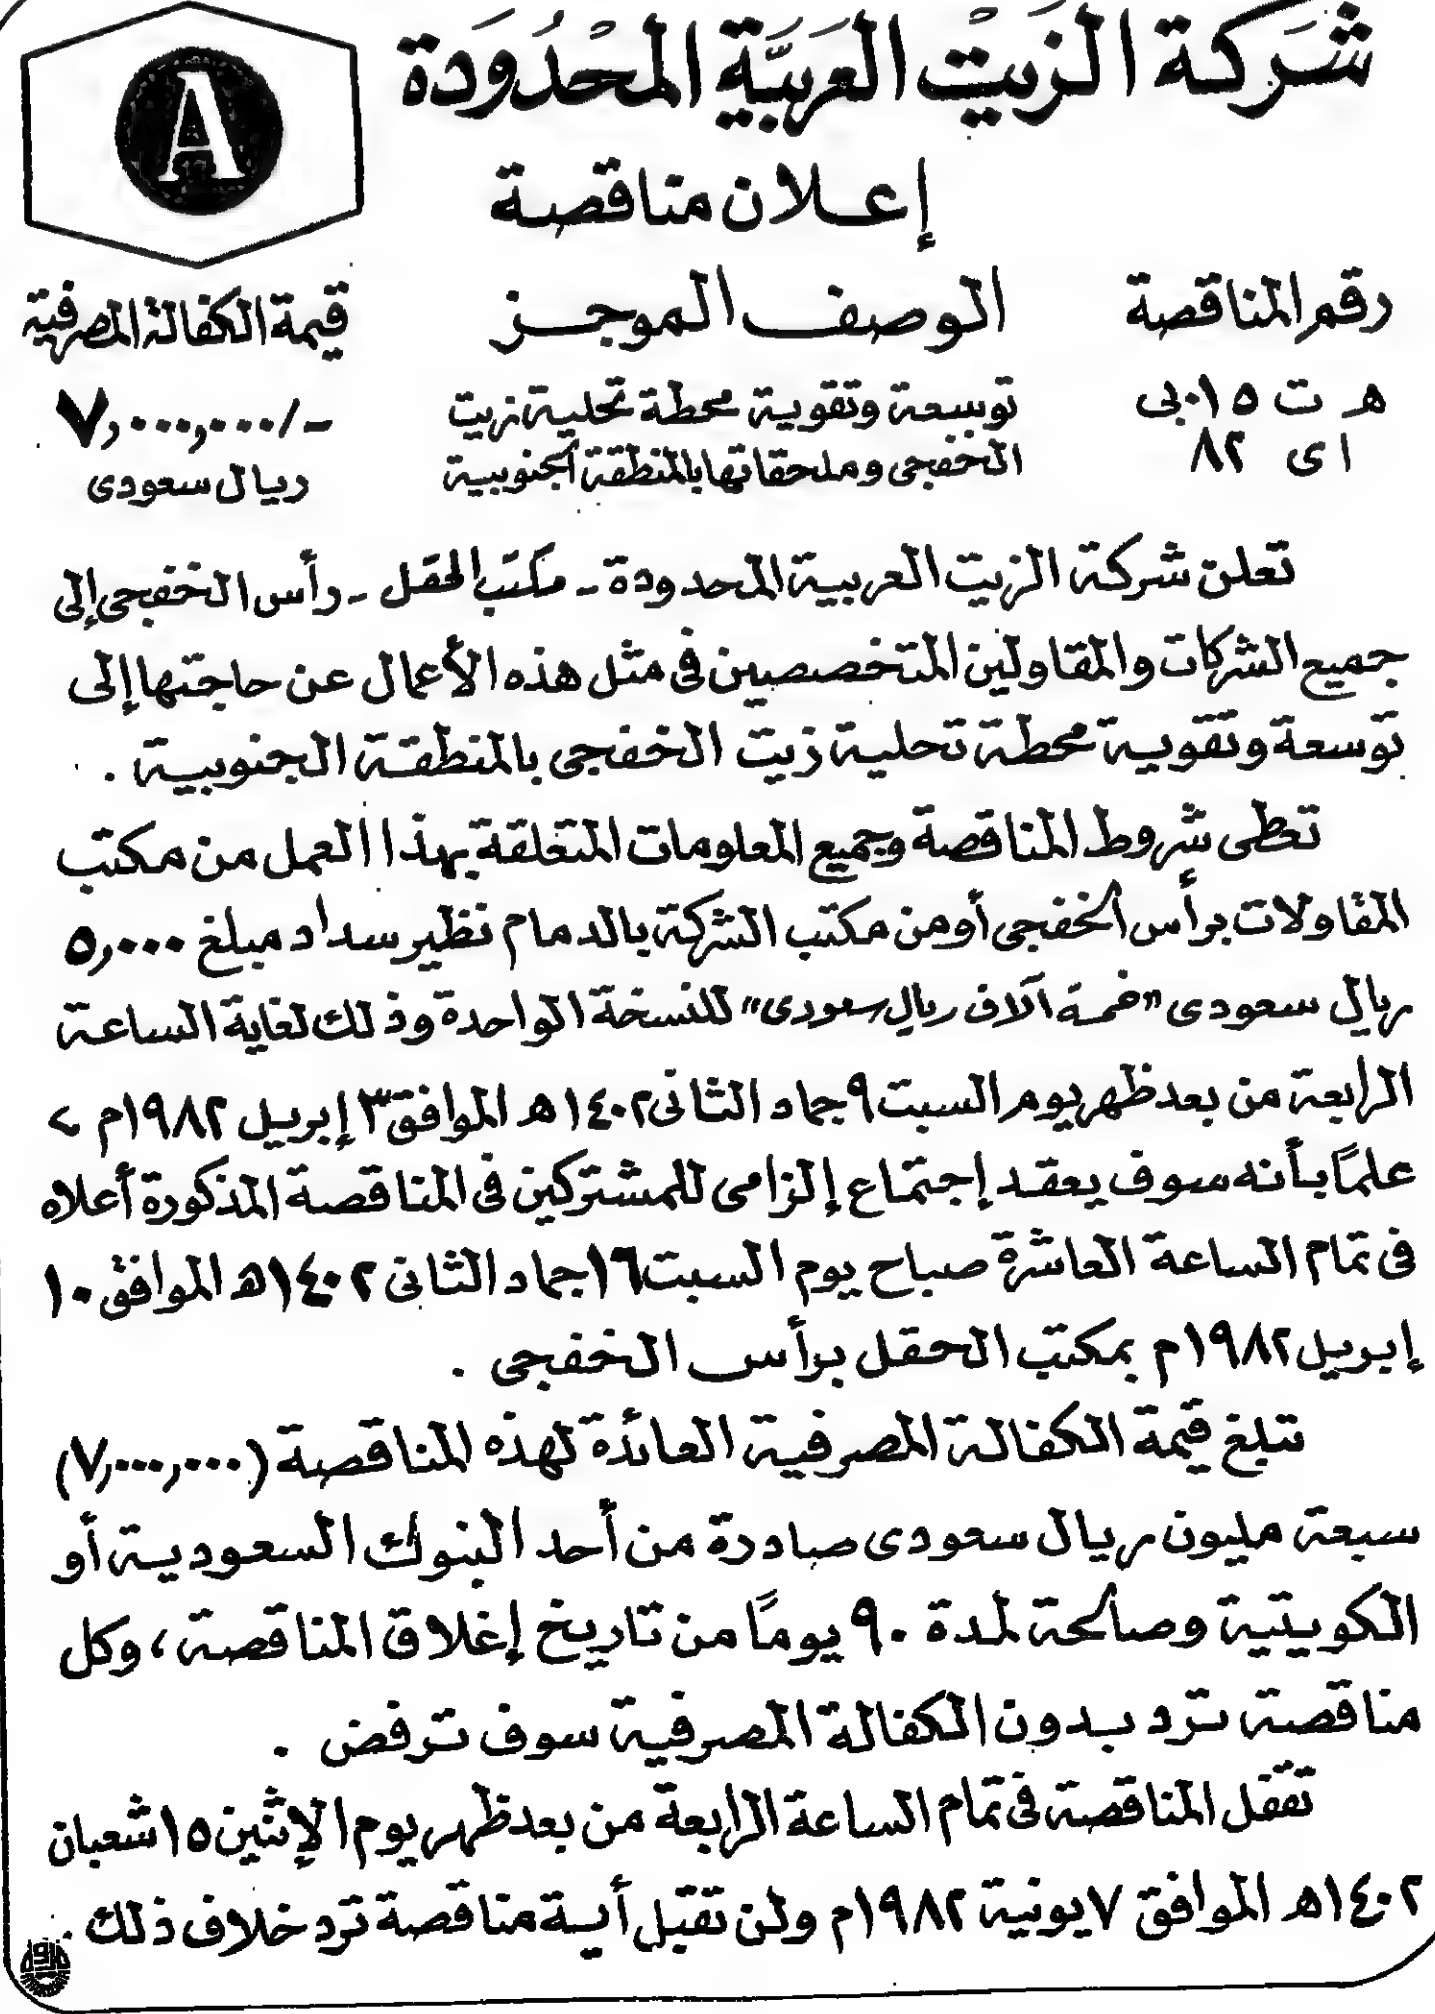 شركة الزيت العربية المحدودة
A
إعلان مناقصة
رقم المناقصة الوصف الموجز قيمة الكفالة المصرفية
هـ ت ٠١٥ بى توسعة وتقوية محطة تحلية زيت ٧,٠٠٠,٠٠٠/-
اى ٨٢ الخفجى وملحقاتها بالمنطقة الجنوبية ريال سعودى
تعلن شركة الزيت العربية المحدودة - مكتب الحقل - رأس الخفجى إلى
جميع الشركات والمقاولين المتخصصين فى مثل هذه الأعمال عن حاجتها إلى
توسعة وتقوية محطة تحلية زيت الخفجى بالمنطقة الجنوبية .
تعطى شروط المناقصة وجميع المعلومات المتعلقة بهذا العمل من مكتب
المقاولات برأس الخفجى أو من مكتب الشركة بالدمام نظير سداد مبلغ ٥,٠٠٠
ريال سعودى "خمسة آلاف ريال سعودى" للنسخة الواحدة وذلك لغاية الساعة
الرابعة من بعد ظهر يوم السبت ٩ جماد الثانى ١٤٠٢هـ الموافق ٣ إبريل ١٩٨٢م >
علمًا بأنه سوف يعقد إجتماع إلزامى للمشتركين فى المناقصة المذكورة أعلاه
فى تمام الساعة العاشرة صباح يوم السبت ١٦ جماد الثانى ١٤٠٢هـ الموافق ١٠
إبريل ١٩٨٢م بمكتب الحقل برأس الخفجى .
تبلغ قيمة الكفالة المصرفية العائدة لهذه المناقصة (٧,٠٠٠,٠٠٠)
سبعة مليون ريال سعودى صادرة من أحد البنوك السعودية أو
الكويتية وصالحة لمدة ٩٠ يومًا من تاريخ إغلاق المناقصة ، وكل
مناقصة ترد بدون الكفالة المصرفية سوف ترفض .
تقفل المناقصة فى تمام الساعة الرابعة من بعد ظهر يوم الإثنين ١٥ شعبان
١٤٠٢هـ الموافق ٧ يونية ١٩٨٢م ولن تقبل أية مناقصة ترد خلاف ذلك .